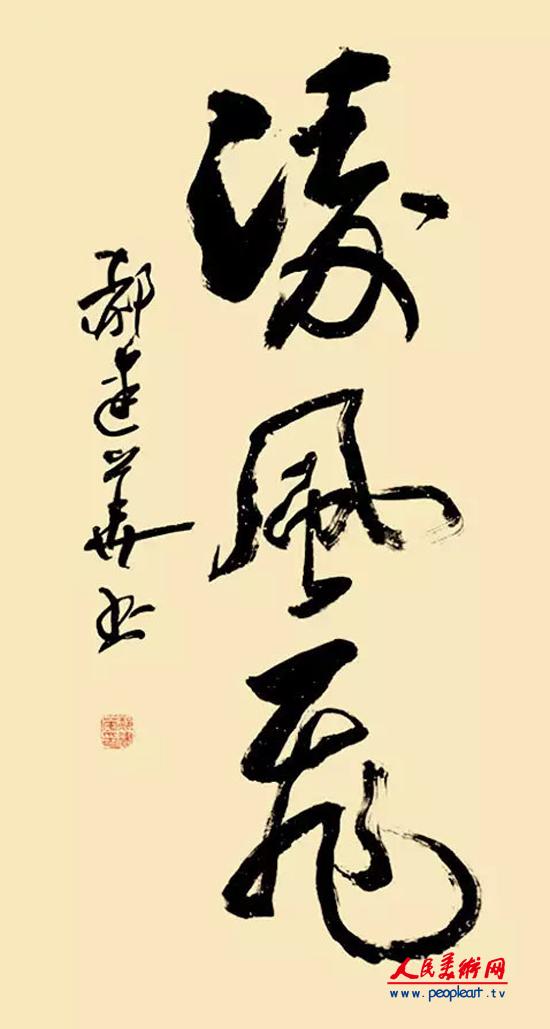 凌風飛
郝建華书
人民美術网
www.peopleart.tv